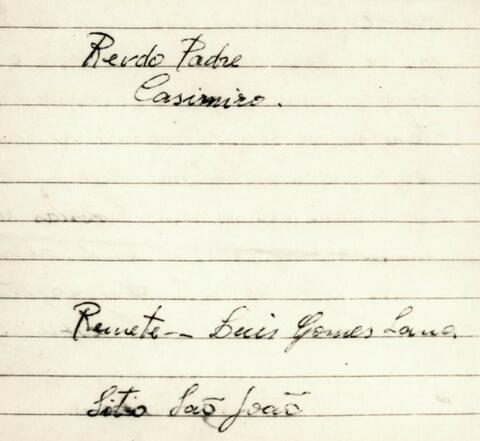 Revdo Padre
Casimiro.
Remete — Luis Gomes Lana
Sitio São João